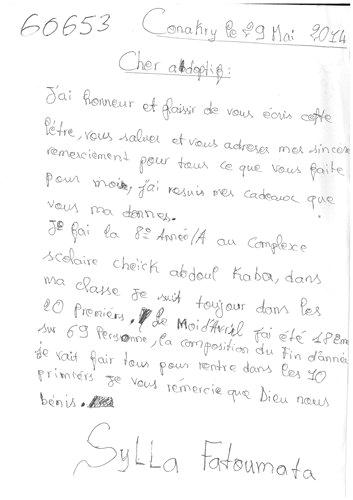 60653
Conakry le 29 Mai 2014
Cher adoptif :
J'ai honneur et plaisir de vous écris cette
lètre, vous saluer et vous adresser mes sincere
remerciement pour tous ce que vous faite
pour moi, j'ai resuis mes cadeaux que
vous ma donnes.
Je fai la 8è Année/A au Complexe
scolaire cheick abdoul Kaba, dans
ma classe je suit toujour dans les
20 premiers. Le Moi d'Avriel j'ai été 18èm
sur 69 Personne, la composition du Fin d'année
je vait fair tous pour rentre dans les 10
primiers je vous rémercie que Dieu nous
bénis.
Sylla Fatoumata